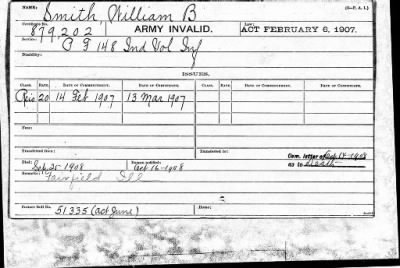 NAME: Smith, William B (3-P.A.I.)
Certificate No. 879,202 ARMY INVALID. Law: ACT FEBRUARY 6, 1907.
Service: G 148 Ind Vol Inf
Disability:
ISSUES.
CLASS. RATE. DATE OF COMMENCEMENT. DATE OF CERTIFICATE. CLASS. RATE. DATE OF COMMENCEMENT. DATE OF CERTIFICATE.
20 14 Feb 1907 13 Mar 1907
Fees:
Transferred from: Transferred to: Com. letter of Oct 17-1908
as to Death
Died: Sep. 25-1908 Bureau notified: Oct 16-1908
Remarks: Fairfield Ill
Former Roll No. 51335 (Act June) Home: